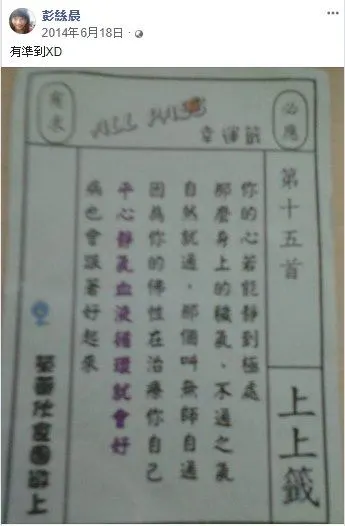 彭絲晨
2014年6月18日
有準到XD
必應
ALL PASS
有求
幸運籤
第十五首
上上籤
你的心若能靜到極處
那麼身上的穢氣、不通之氣
自然就通，那個叫無師自通
因為你的佛性在治療你自己
平心靜氣血液循環就會好
病也會跟著好起來